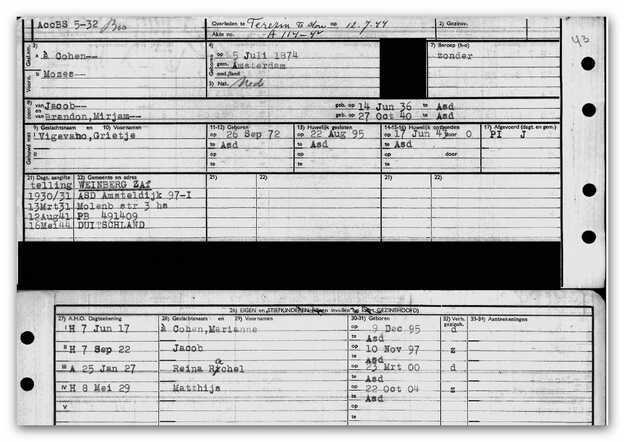 AccBS 5-32
Overleden te Terezin op 12.7.44 2) Gezinnr.
Akte no. A 114-42
43
3) 7) Beroep (h-o)
à Cohen-- op 5 Juli 1874 zonder
gem. Amsterdam
Mozes-- 
5) Nat. Ned
van Jacob-- geb. op 14 Jun 36 te Asd
en van Brandon,Mirjam-- geb. op 27 Oct 40 te Asd
9) Geslachtsnaam en 10) Voornamen 11-12) Geboren 13) Huwelijk gesloten 14-15-16) Huwelijk ontbonden 17) Afgevoerd (dagt. en gem.)
Vigevano,Grietje op 26 Sep 72 op 22 Aug 95 op 17 Jun 43 door O PI J
te Asd te Asd te Asd
op op op door
te te te
21) Dagt. aangifte 22) Gemeente en adres
telling WEINBERG ZAf
1930/31 ASD Amsteldijk 97-I
13Mrt31 Molenb str 3 hs
12Aug41 PB 491409
16Mei44 DUITSCHLAND
26) EIGEN en STIEFKINDEREN
27) A.H.O. Dagteekening 28) Geslachtsnaam en 29) Voornamen 30-31) Geboren 32) Verh. gezinsh. 33-34) Aanteekeningen
I H 7 Jun 17 à Cohen,Marianne op 9 Dec 95 d
te Asd
II H 7 Sep 22 Jacob op 10 Nov 97 z
te Asd
III A 25 Jan 27 Reina Rachel op 23 Mrt 00 d
te Asd
IV H 8 Mei 29 Matthijs op 22 Oct 04 z
te Asd
V op
te